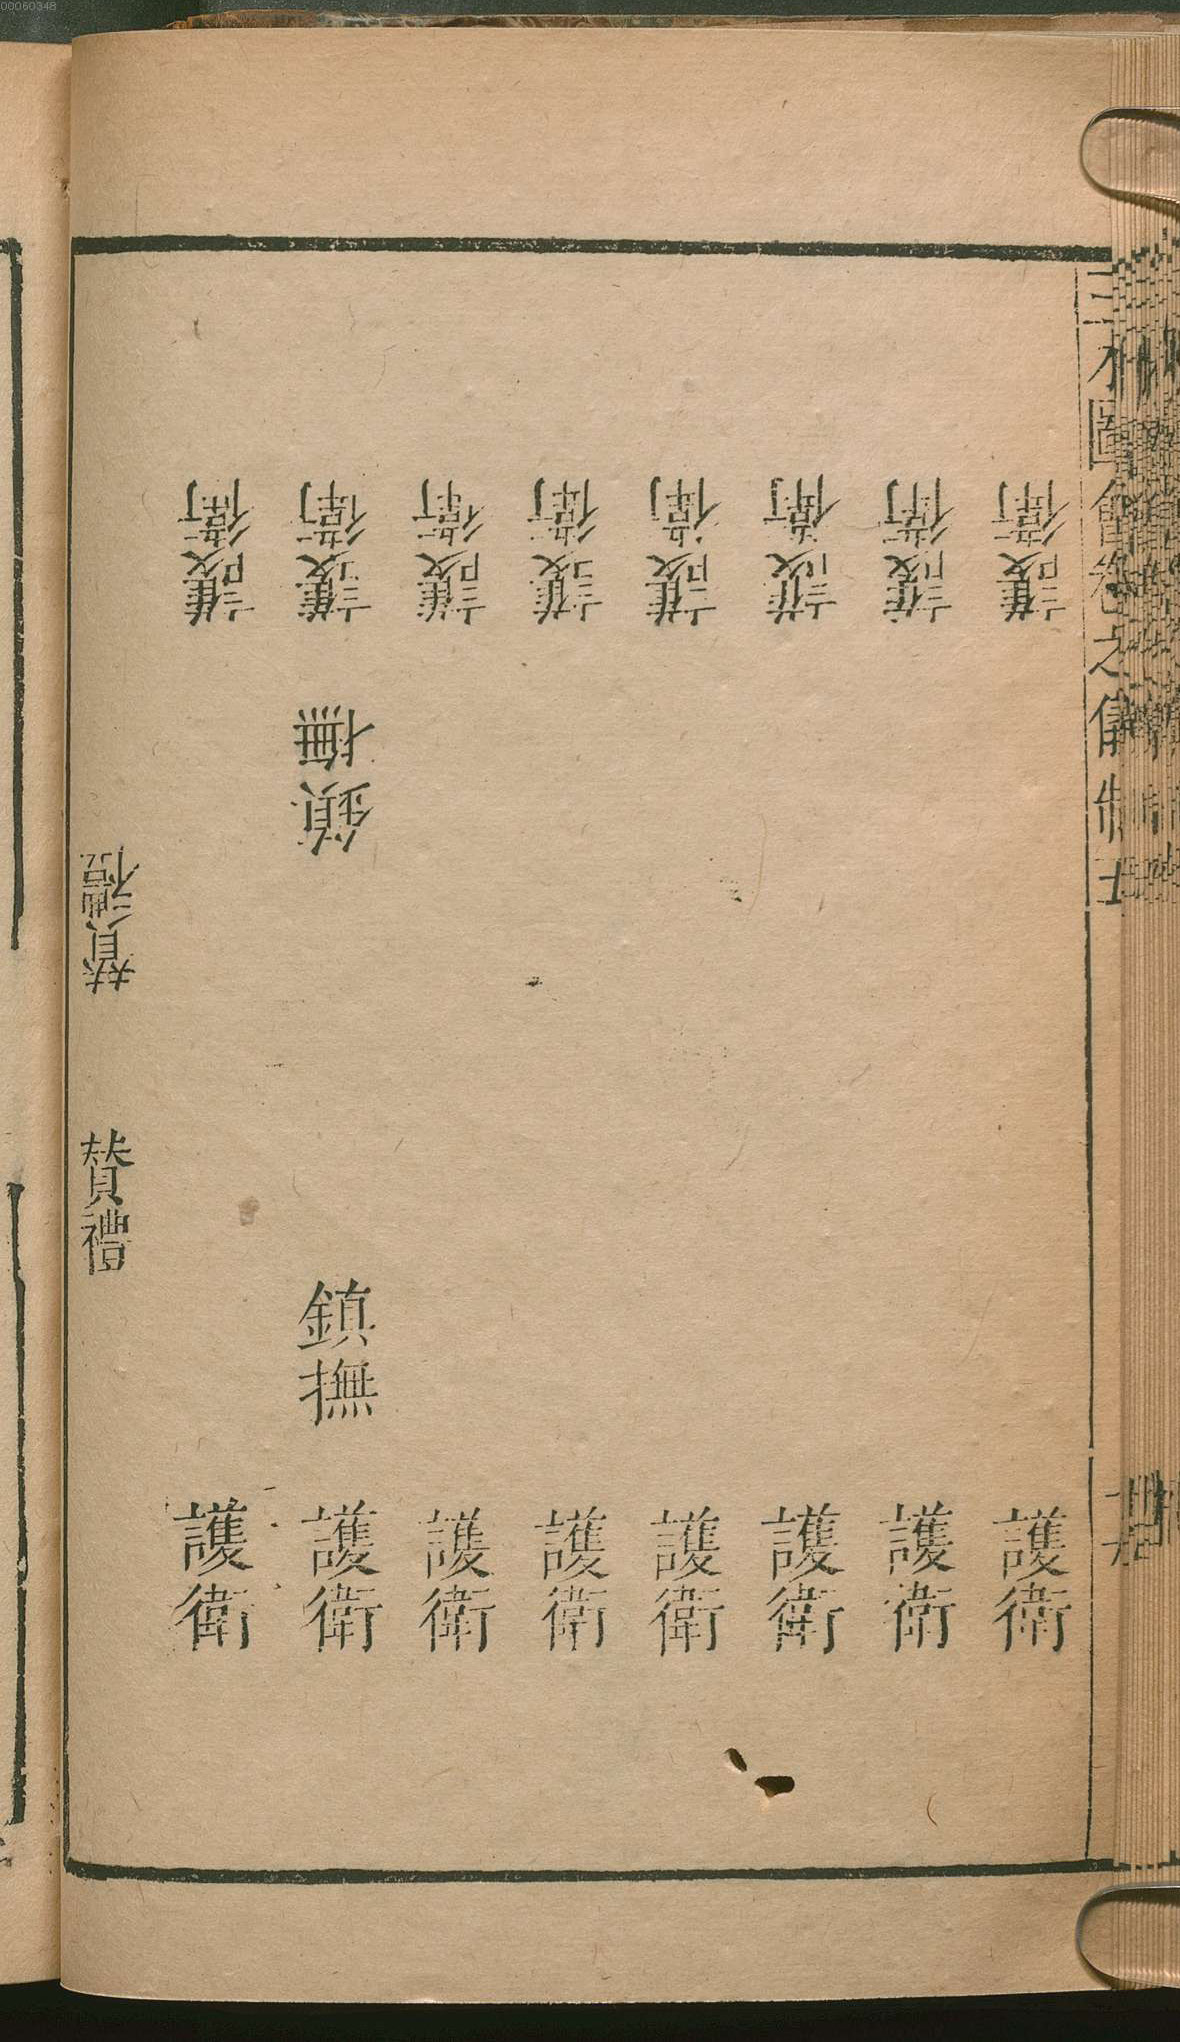 00060348
三才圖會卷之儀制七
護衛
護衛
護衛
護衛
護衛
護衛
護衛
護衛
鎮撫
贊禮
贊禮
鎮撫
護衛
護衛
護衛
護衛
護衛
護衛
護衛
護衛